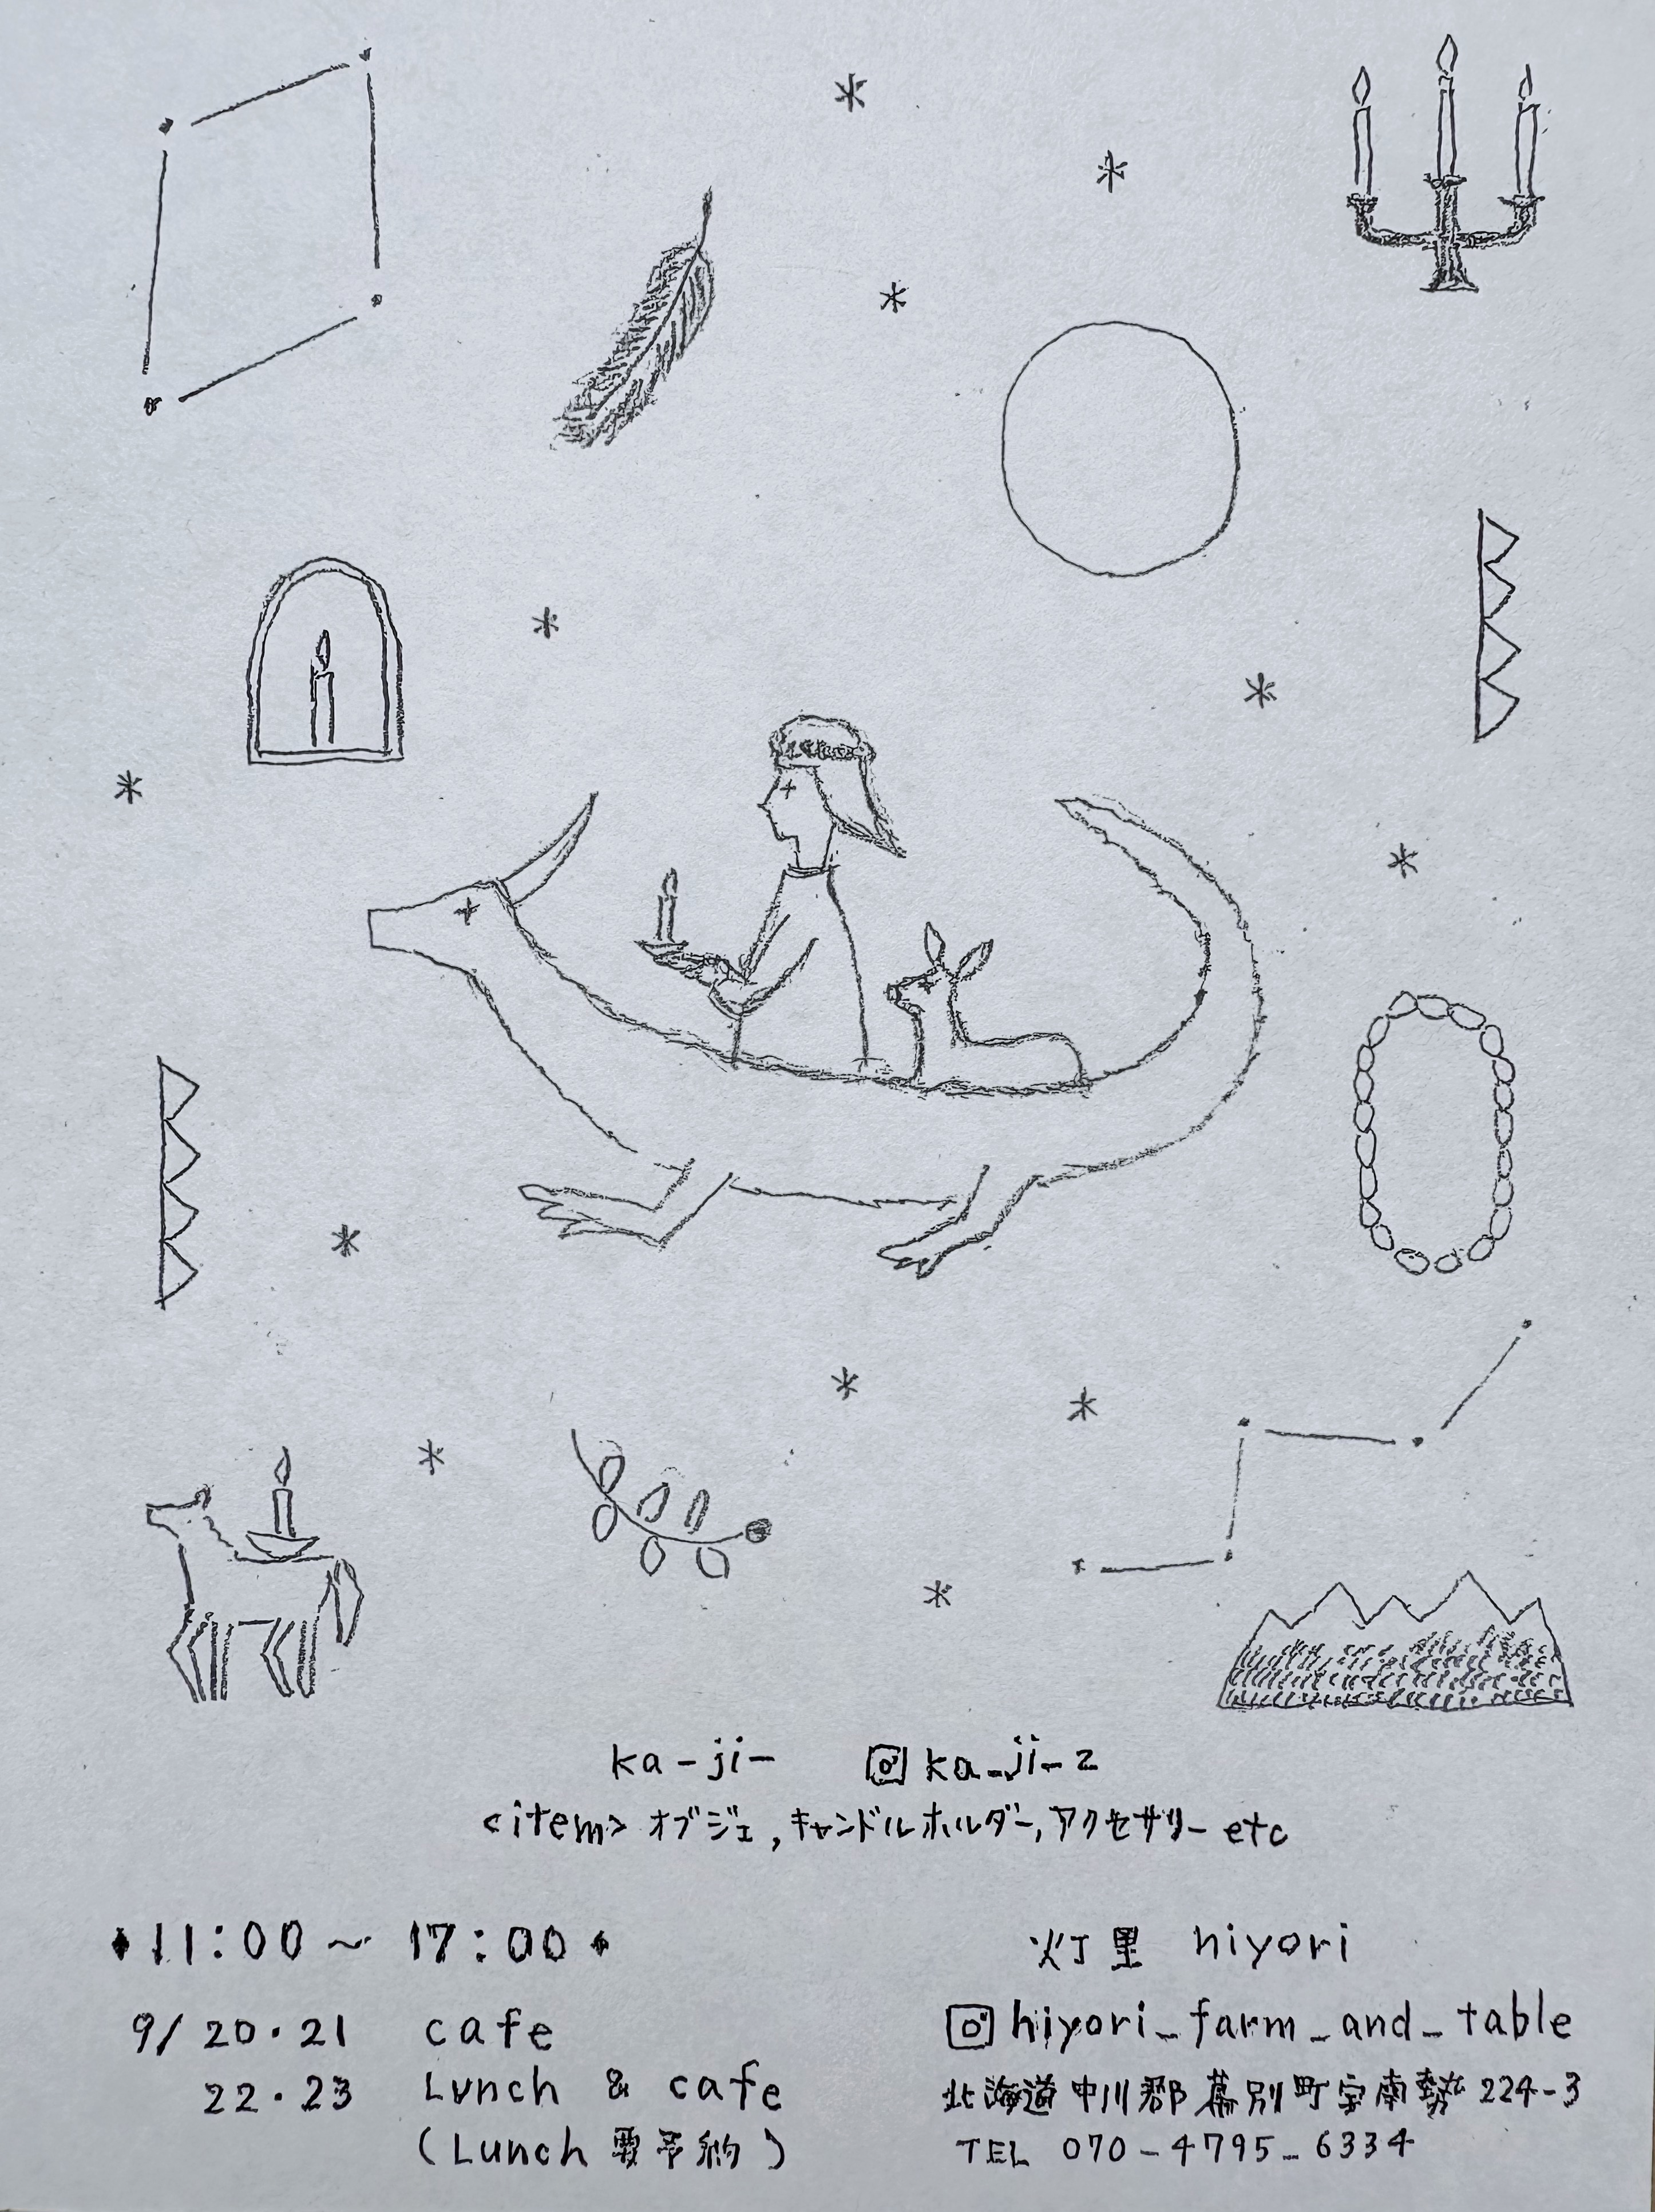 ka-ji- ka-ji-z
<item> オブジェ, キャンドルホルダー, アクセサリー etc
11:00 〜 17:00
9/20・21 cafe
22・23 Lunch & cafe
(Lunch 要予約)
灯里 hiyori
hiyori_farm_and_table
北海道中川郡幕別町字南勢 224-3
TEL 070-4795-6334